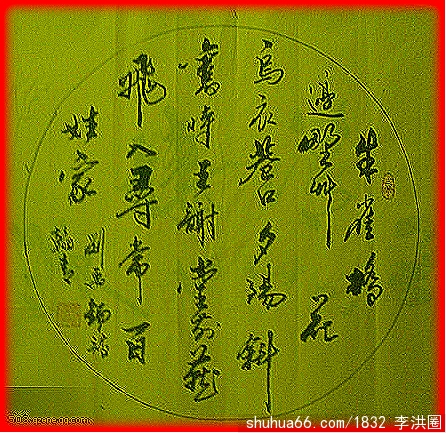 朱雀橋
邊野艸花
烏衣巷口夕陽斜
舊時王謝堂前燕
飛入尋常百
姓家
劉禹錫詩
shuhua66.com/1832 李洪圈